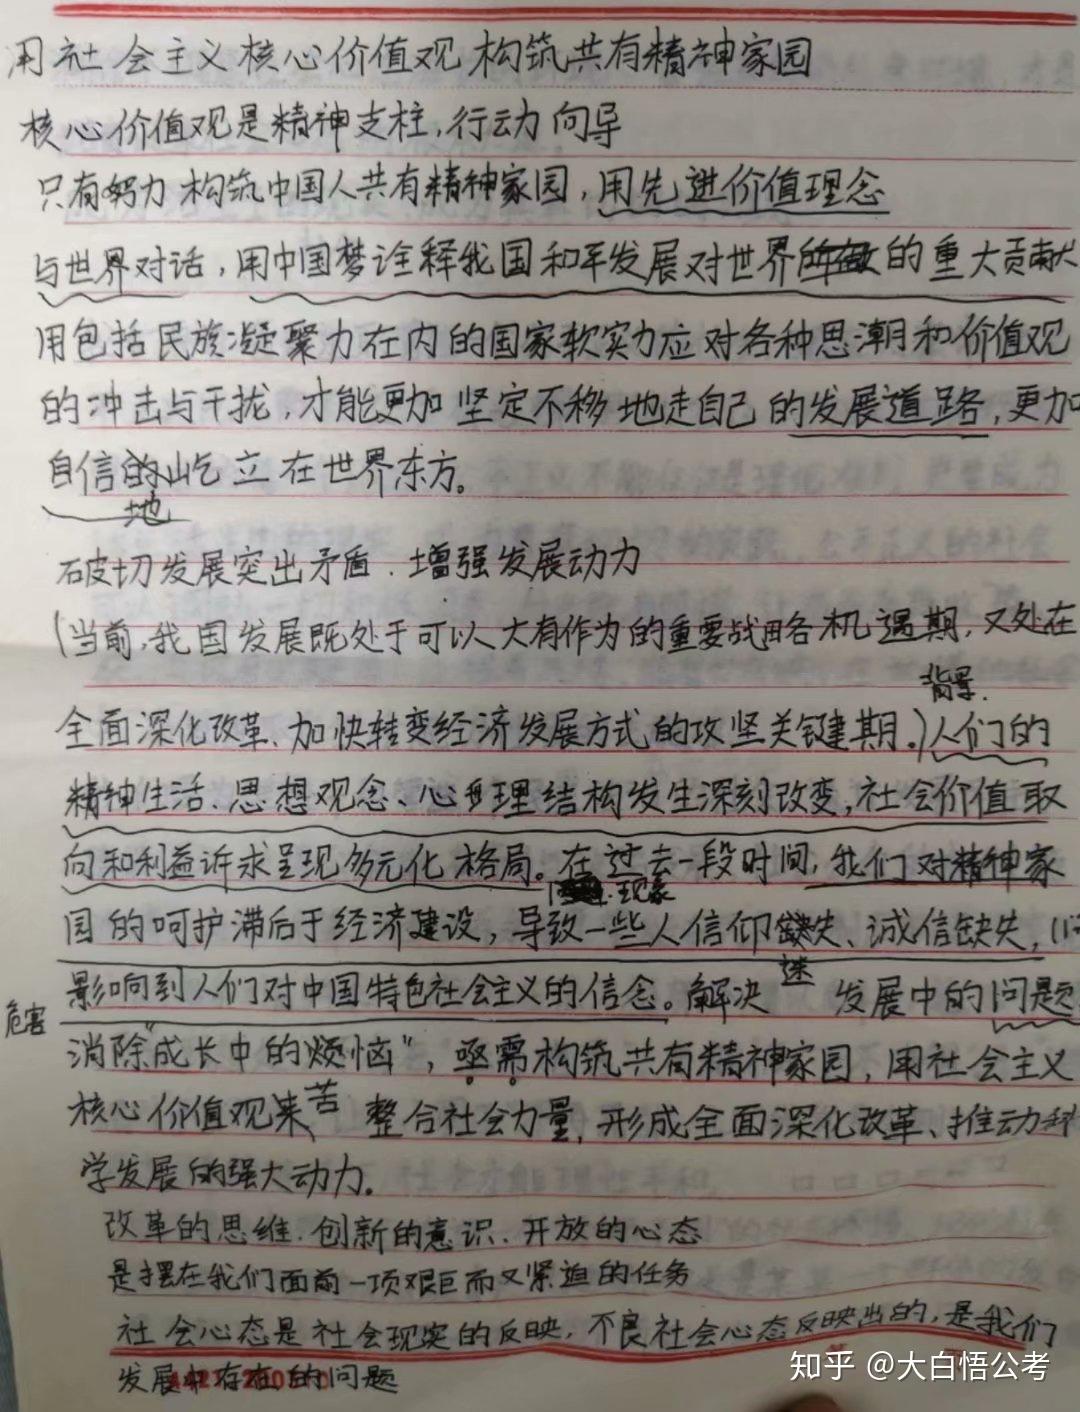 用社会主义核心价值观构筑共有精神家园
核心价值观是精神支柱,行动向导
只有努力构筑中国人共有精神家园,用先进价值理念
与世界对话,用中国梦诠释我国和平发展对世界的重大贡献
用包括民族凝聚力在内的国家软实力应对各种思潮和价值观
的冲击与干扰,才能更加坚定不移地走自己的发展道路,更加
自信的屹立在世界东方。
地
破切发展突出矛盾.增强发展动力
(当前,我国发展既处于可以大有作为的重要战略机遇期,又处在
背景.
全面深化改革、加快转变经济发展方式的攻坚关键期.)人们的
精神生活、思想观念、心理结构发生深刻改变,社会价值取
向和利益诉求呈现多元化格局。在过去一段时间,我们对精神家
现象
园的呵护滞后于经济建设,导致一些人信仰缺失、诚信缺失,
迷
危害 影响到人们对中国特色社会主义的信念。解决 发展中的问题
消除"成长中的烦恼",亟需构筑共有精神家园,用社会主义
核心价值观来苦 整合社会力量,形成全面深化改革、推动科
学发展的强大动力。
改革的思维.创新的意识.开放的心态
是摆在我们面前一项艰巨而又紧迫的任务
社会心态是社会现实的反映,不良社会心态反映出的,是我们
发展中存在的问题
知乎 @大白悟公考